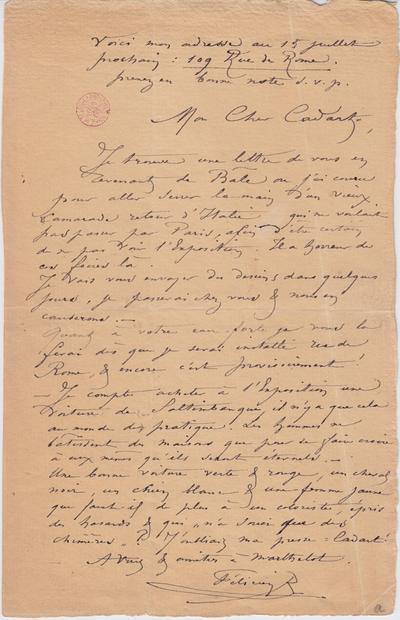 Voici mon adresse au 15 juillet
prochain : 109 Rue de Rome.
prenez en bonne note s.v.p.
Mon Cher Cadart,
Je trouve une lettre de vous en
revenant de Bâle où j'ai couru
pour aller serrer la main d'un vieux
Camarade retour d'Italie qui ne voulait
pas passer par Paris, afin d'être certain
de ne pas voir l'Exposition. Il a horreur de
ces foires là.
Je vais vous envoyer des dessins dans quelques
jours, je passerai chez vous & nous en
causerons. —
Quant à votre eau forte je vous la
ferai dès que je serai installé rue de
Rome, & encore c'est provisoirement !
— Je compte acheter à l'Exposition une
Voiture de Saltimbanque, il n'y a que cela
au monde de pratique. Les hommes ne
bâtissent des maisons que pour se faire croire
à eux mêmes qu'ils seront éternels. —
Une bonne voiture verte & rouge, un cheval
noir, un chien blanc & une femme jaune
que faut-il de plus à un coloriste épris
des hasards & qui "n'a souci que des
chimères" ? J'oubliais ma presse = Cadart !
A vous & amitiés à
Félicien R
a